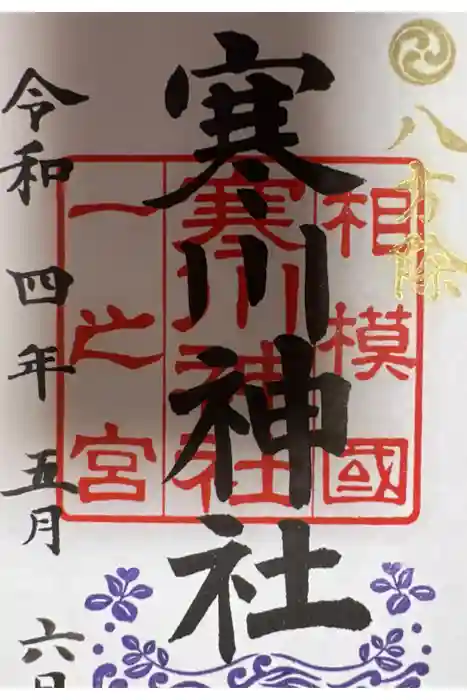 八方除
相模國
寒川神社
一之宮
寒川神社
令和四年五月六日